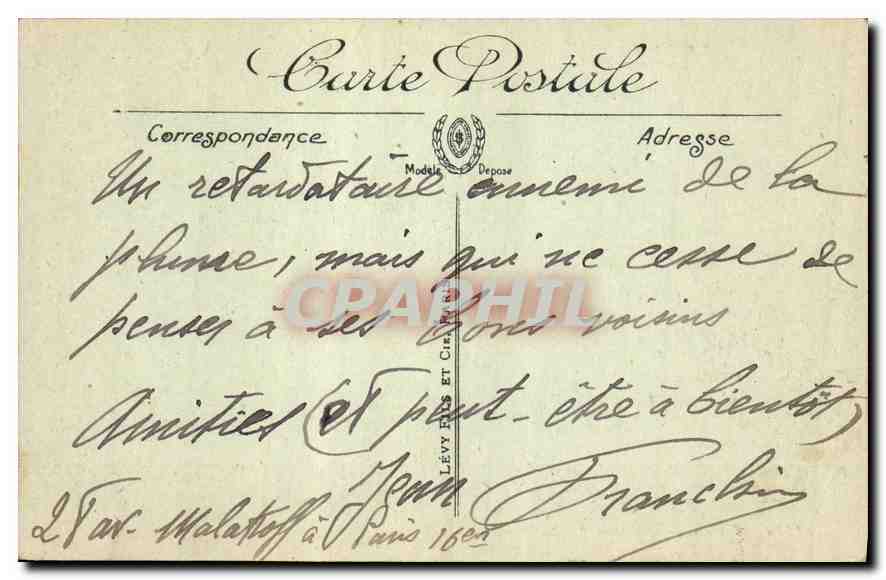 Carte Postale
Correspondance
Adresse
Modèle Déposé
Un retardataire ennemi de la
plume, mais qui ne cesse de
CPAPHIL
penser à ses bons voisins
LÉVY FILS ET CIE, PARIS
Amitiés (et peut-être à bientôt)
Jean
av. Malakoff à Paris 16e